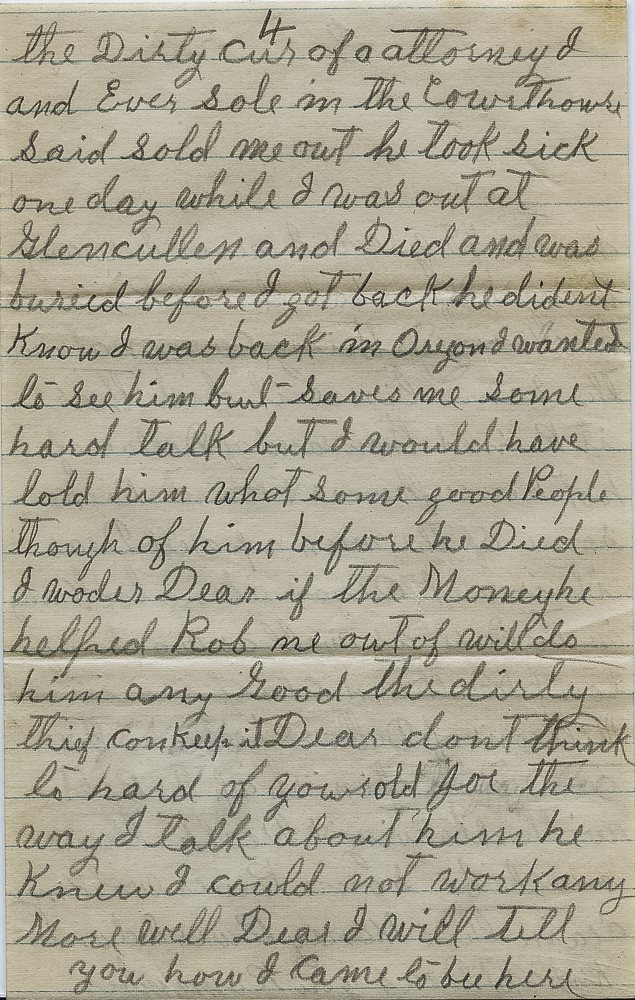 4
the Dirty Cur of a attorney I
and Ever Sole in the Courthouse
Said sold me out he took sick
one day while I was out at
Glencullen and Died and was
buried before I got back he dident
Know I was back in Oregon I wanted
to see him but saves me Some
hard talk but I would have
told him what some good People
though of him before he Died
I woder Dear if the Money he
helped Rob me out of will do
him any Good the dirty
thief con keep it Dear dont think
to hard of yours old Joe the
way I talk about him he
Knew I could not work any
More well Dear I will tell
you how I Came to bee here